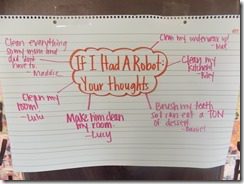 If I Had A Robot:
Your thoughts
Clean everything
so my mom and
dad dont
have to.
- Maddie
Clean my underwear
Clean my
kitchen!
- Riley
Clean my
room!
- Lulu
Make him clean
my room.
- Lucy
Brush my teeth
so I can eat a TON
of dessert